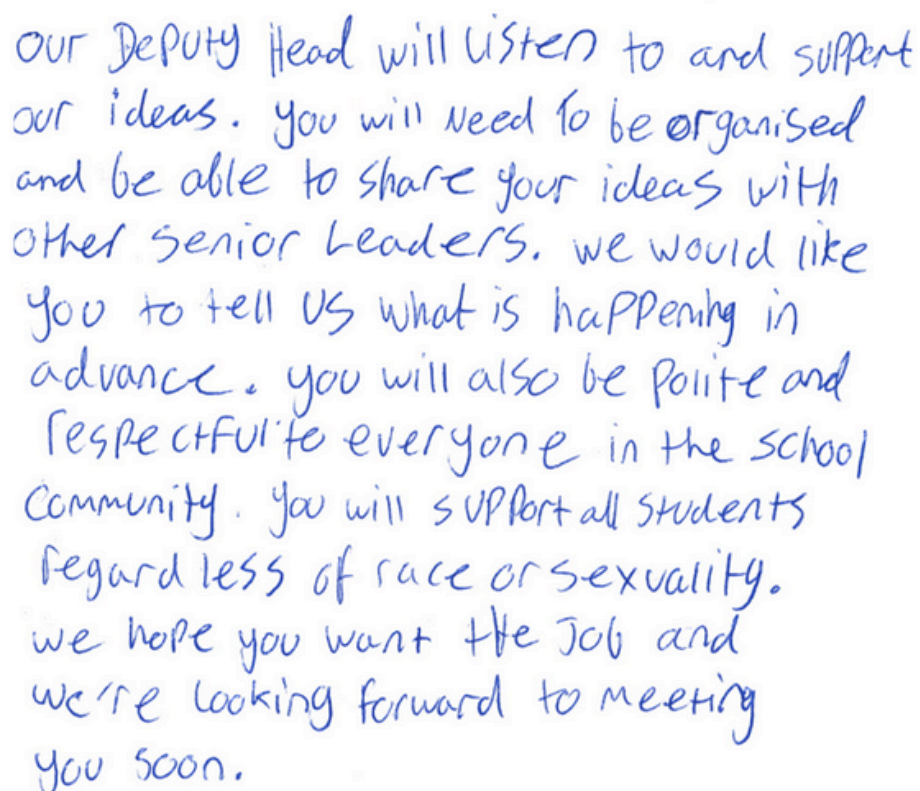 our Deputy Head will listen to and support
our ideas. you will need to be organised
and be able to share your ideas with
other senior Leaders. we would like
you to tell us what is happening in
advance. you will also be polite and
respectful to everyone in the school
community. you will support all students
regardless of race or sexuality.
we hope you want the Job and
we're looking forward to meeting
you soon.